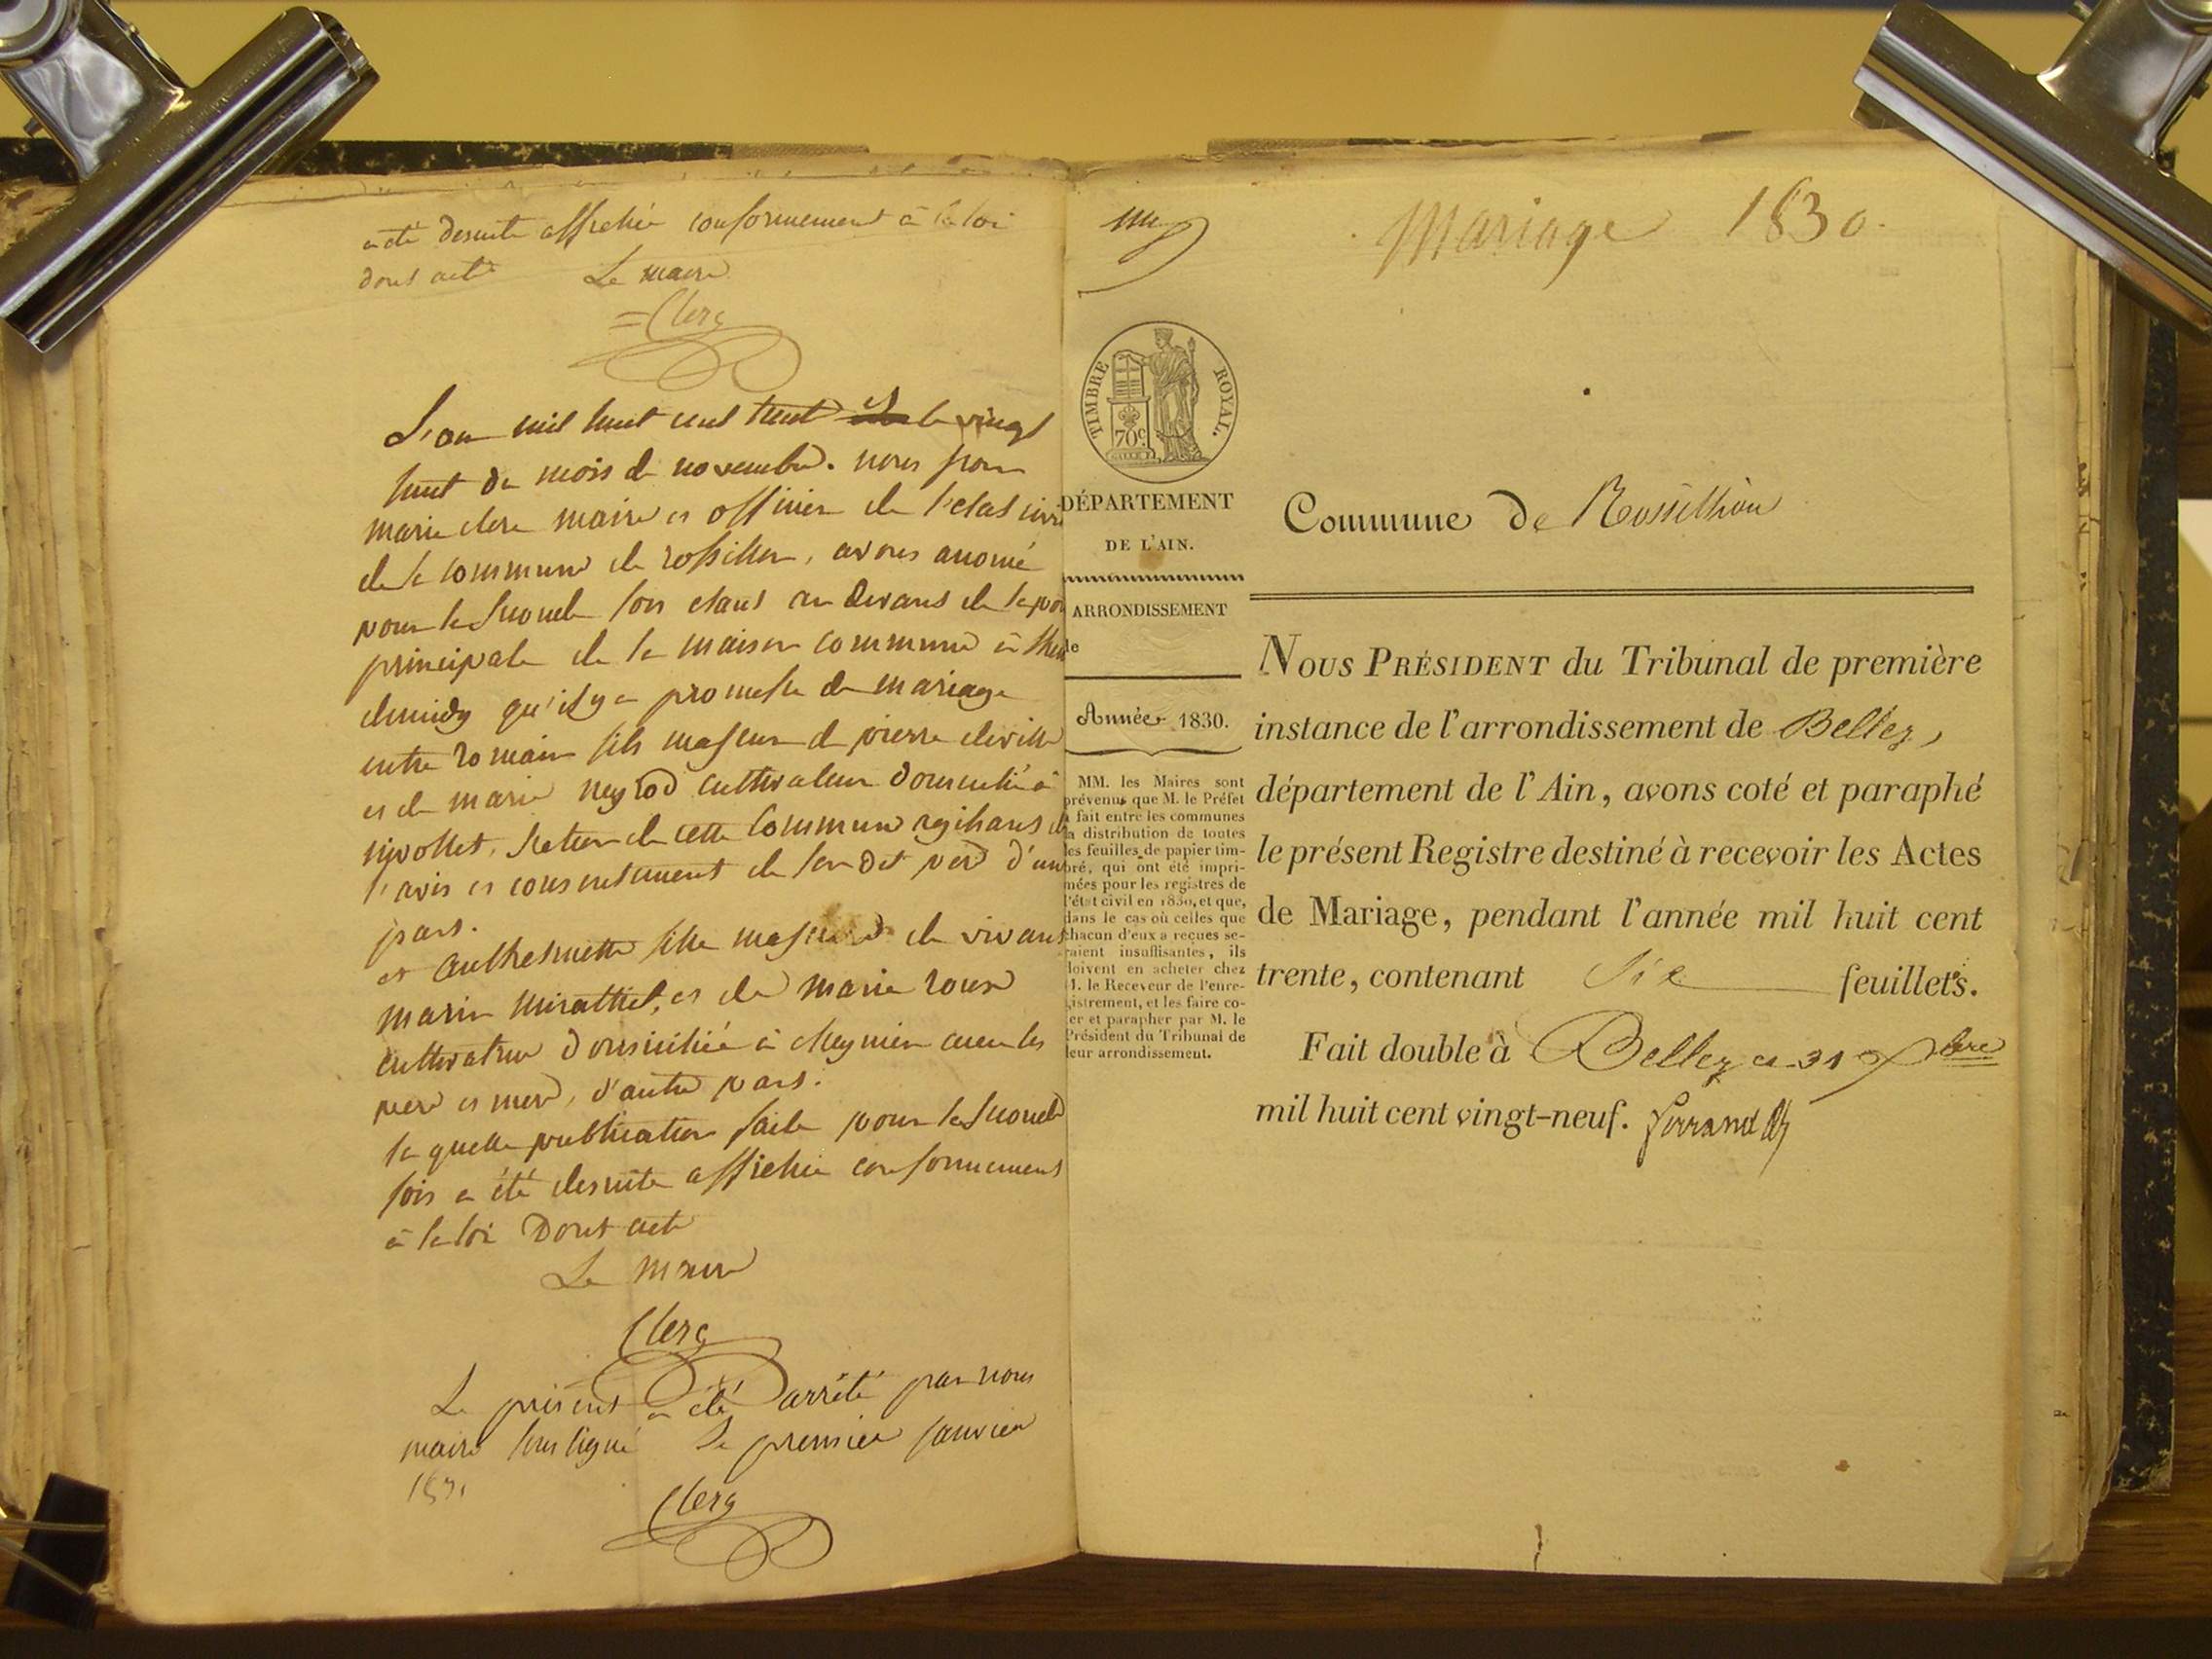 a été desuite affichée conformement à la loi
dont acte Le maire
Clerc
L'an mil huit cent trente le vingt
huit du mois de novembre. nous jean
marie clerc maire et officier de l'etat civil
de la commune de rossillon, avons anoncé
pour la seconde fois etant au devant de la porte
principale de la maison commune à l'heure
de midy qu'il y a promesse de mariage
entre romain fils majeur de pierre deville
et de marie neyrod cultivateur domicilié à
section de cette commune agissant de
l'avis et consentement de son dit pere d'une
part.
et anthelmette fille majeure de vivant
marin miralliet, et de marie roux
cultivatrice domiciliée à cheynieu avec les
pere et mere, d'autre part.
la quelle publication faite pour la seconde
fois a été desuite affichée conformement
à la loi Dont acte
Le maire
Clerc
Le présent a été arrêté par nous
maire soussigné le premier janvier
1831
Clerc
Mariage 1830.
TIMBRE ROYAL.
70c
DÉPARTEMENT
DE L'AIN.
ARRONDISSEMENT
de
Année 1830.
MM. les Maires sont
prévenus que M. le Préfet
a fait entre les communes
la distribution de toutes
les feuilles de papier tim-
bré, qui ont été impri-
mées pour les registres de
l'état civil en 1830, et que,
dans le cas où celles que
chacun d'eux a reçues se-
raient insuffisantes, ils
doivent en acheter chez
M. le Receveur de l'enre-
gistrement, et les faire co-
ter et parapher par M. le
Président du Tribunal de
leur arrondissement.
Commune de Rossillion
NOUS PRÉSIDENT du Tribunal de première
instance de l'arrondissement de Belley,
département de l'Ain, avons coté et paraphé
le présent Registre destiné à recevoir les Actes
de Mariage, pendant l'année mil huit cent
trente, contenant Six feuillets.
Fait double à Belley ce 31 Xbre
mil huit cent vingt-neuf. Ferrand